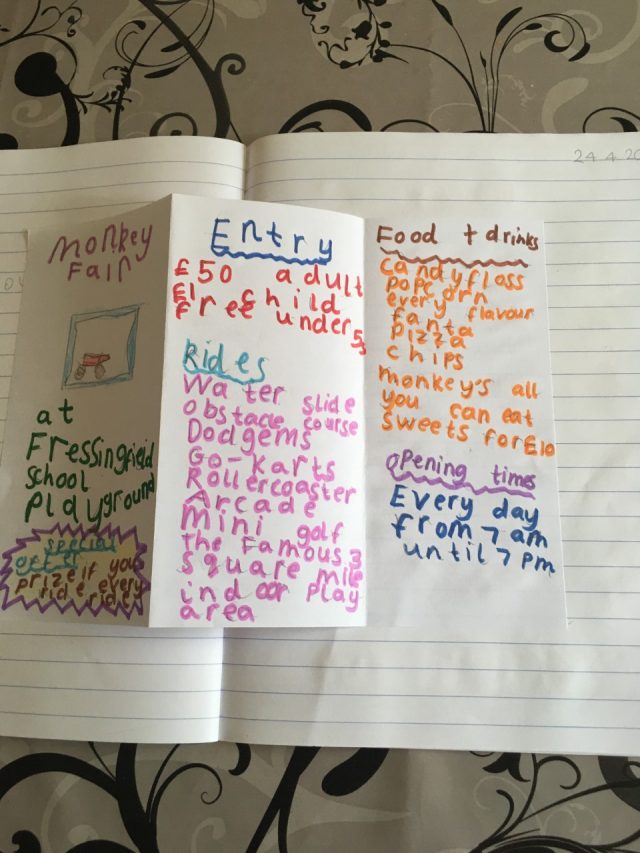 24.4.20
Monkey
Fair
at
Fressingfield
school
playground
special
offer
prize if you
ride every
ride
Entry
£50 adult
£1 child
free under
5s
Rides
Water slide
obstacle course
Dodgems
Go-karts
Rollercoaster
Arcade
mini golf
the famous 3
square mile
indoor play
area
Food + drinks
candyfloss
popcorn
every flavour
fanta
pizza
chips
monkey's all
you can eat
sweets for £10
opening times
Every day
from 7 am
until 7 pm